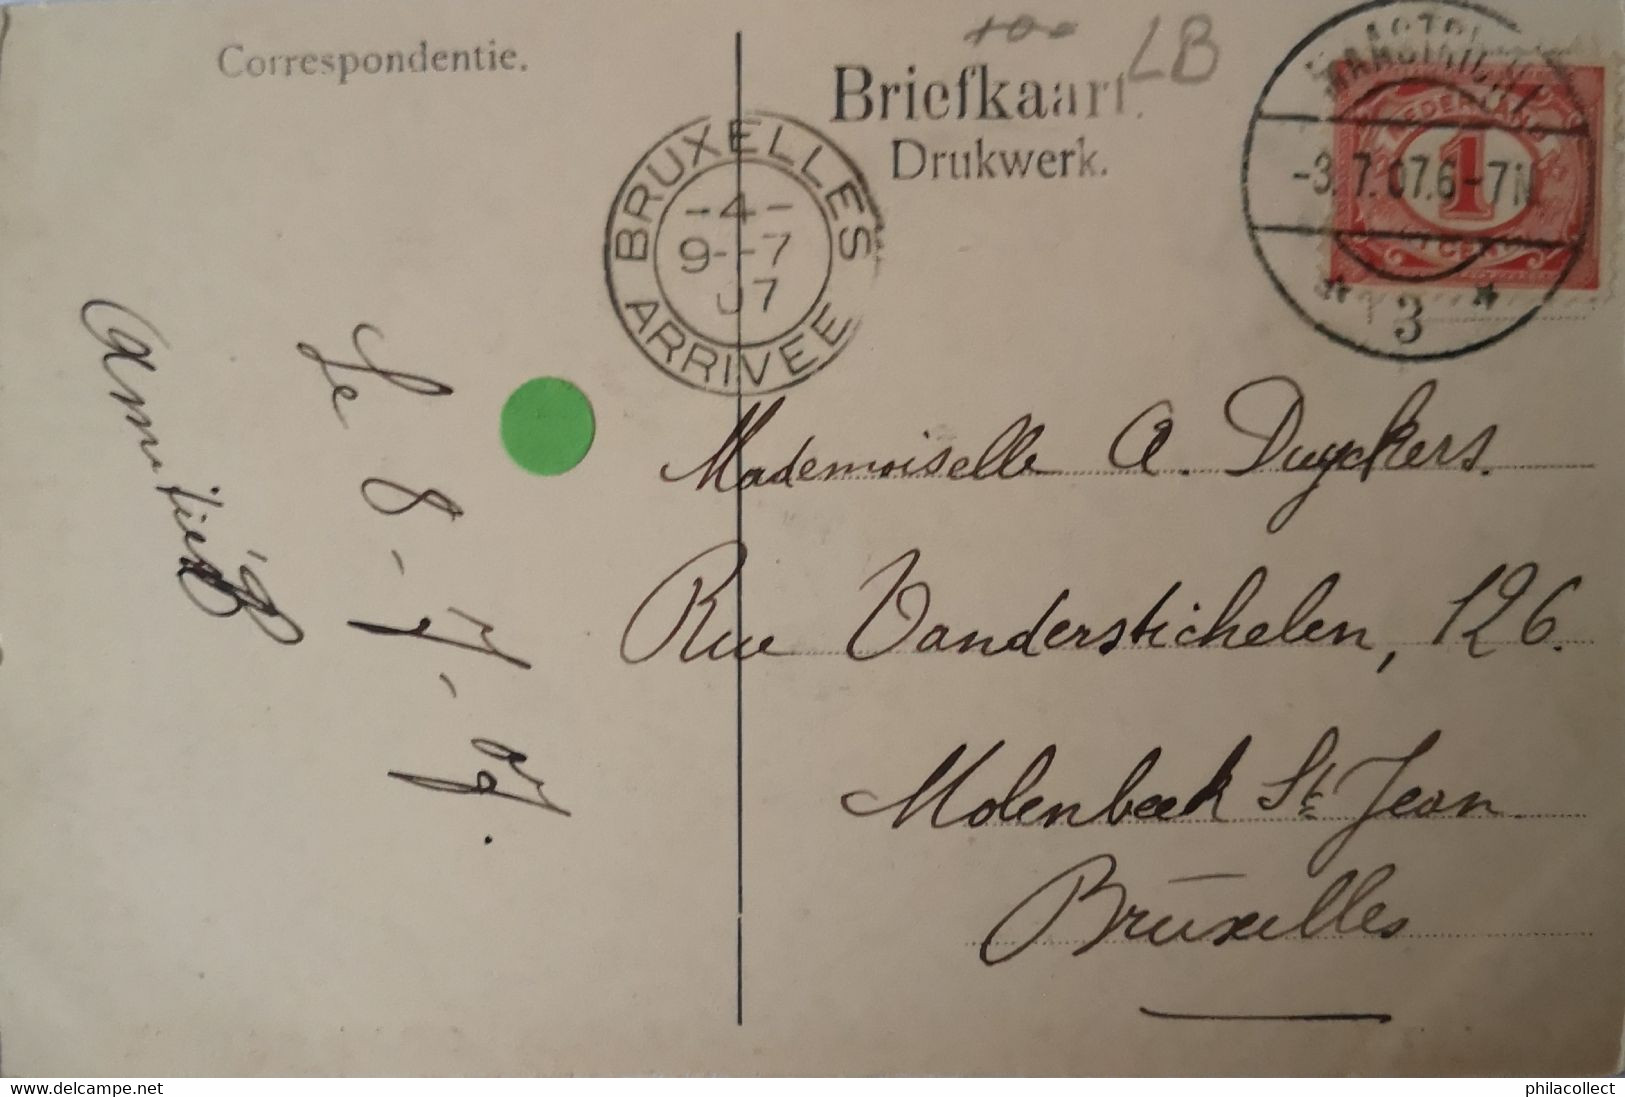 Correspondentie.
Briefkaart.
Drukwerk.
LB
BRUXELLES
-4-
9--7
07
ARRIVEE
NEDERLAND
1
CENT
-3.7.07.6-7N
3
Mademoiselle A. Duyckers.
Rue Vanderstichelen, 126.
Molenbeek St Jean
Bruxelles
Le 8-7-07.
Amitiés
delcampe.net
philacollect